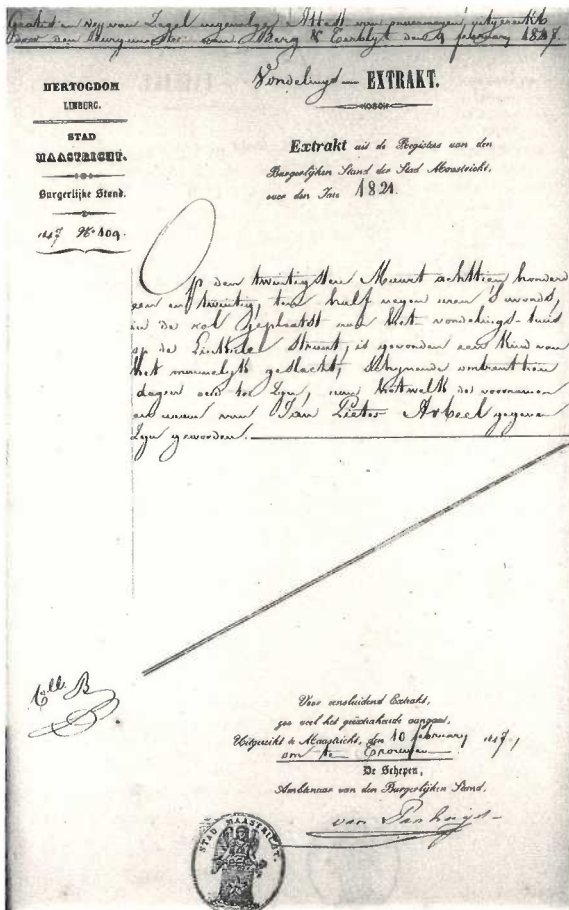 Gratis en vrij van Zegel ingevolge Attest van onvermogen, uitgereikt
door den Burgemeester van Berg & Terblyt den 9 february 1847.
HERTOGDOM
LIMBURG.
STAD
MAASTRICHT.
Burgerlijke Stand.
1847 No. 109.
Vondelings- EXTRAKT.
Extrakt uit de Registers van den
Burgerlijken Stand der Stad Maastricht,
over den Jare 1821.
Op den twintigsten Maart achttien honderd
een en twintig, ten half negen uren 's avonds,
in de rol geplaatst aan het vondelings-huis
op de straat, is gevonden een kind van
het mannelyk geslacht, schynende omtrent tien
dagen oud te zyn, aan hetwelk de voornamen
en naam van Jan Pieter Arbeel gegeven
zyn geworden.
Coll. B
Voor eensluidend Extrakt,
zoo veel het geëxtraheerde aangaat,
Uitgereikt te Maastricht, den 10 february 1847,
om te Trouwen.
De Schepen,
Ambtenaar van den Burgerlijken Stand,
van Panhuys
STAD MAASTRICHT.